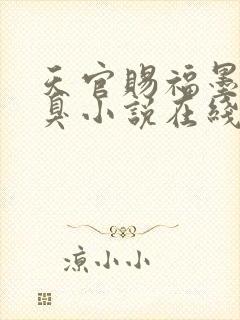 天官赐福墨
臭小说在线
凉小小